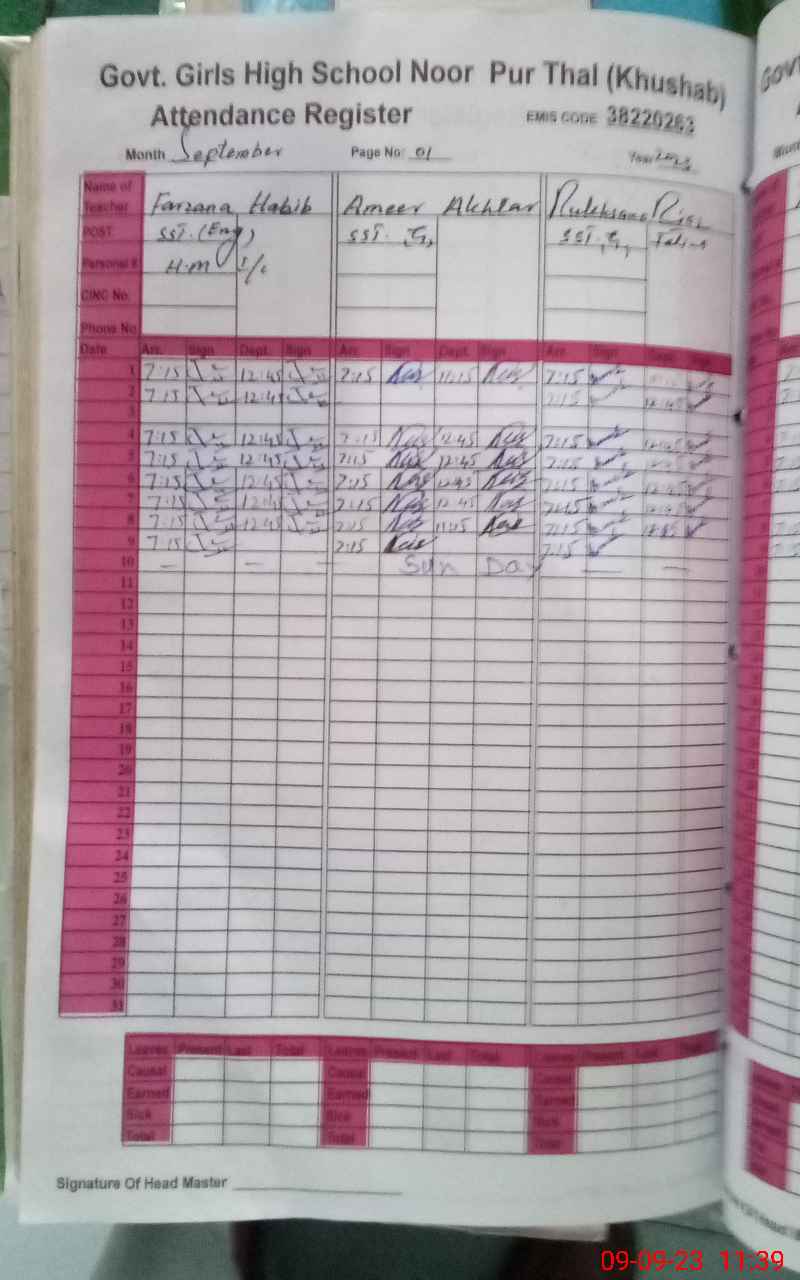 Govt. Girls High School Noor Pur Thal (Khushab)
Attendance Register
EMIS CODE 38220263
Month September Page No: 01 Year 2023
Name of Teacher Farzana Habib Ameer Akhtar Rukhsana
POST SST.(Eng) SST. SST.
Personal # H.M I/C
CINC No.
Phone No
Date Arr. Sign Dept. Sign Arr. Sign Dept. Sign Arr. Sign Dept. Sign
1 7:15 12:45 7:15 11:15 7:15
2 7:15 12:45 7:15 12:45
3
4 7:15 12:45 7:15 12:45 7:15 12:45
5 7:15 12:45 7:15 12:45 7:15 12:45
6 7:15 12:45 7:15 12:45 7:15 12:45
7 7:15 12:45 7:15 12:45 7:15 12:45
8 7:15 12:45 7:15 11:15 7:15
9 7:15 7:15 7:15
10 — — — Sun Day — —
11
12
13
14
15
16
17
18
19
20
21
22
23
24
25
26
27
28
29
30
31
Leaves Present Last Total Leaves Present Last Total Leaves Present Last Total
Causal Causal Causal
Earned Earned Earned
Sick Sick Sick
Total Total Total
Signature Of Head Master
09-09-23 11:39